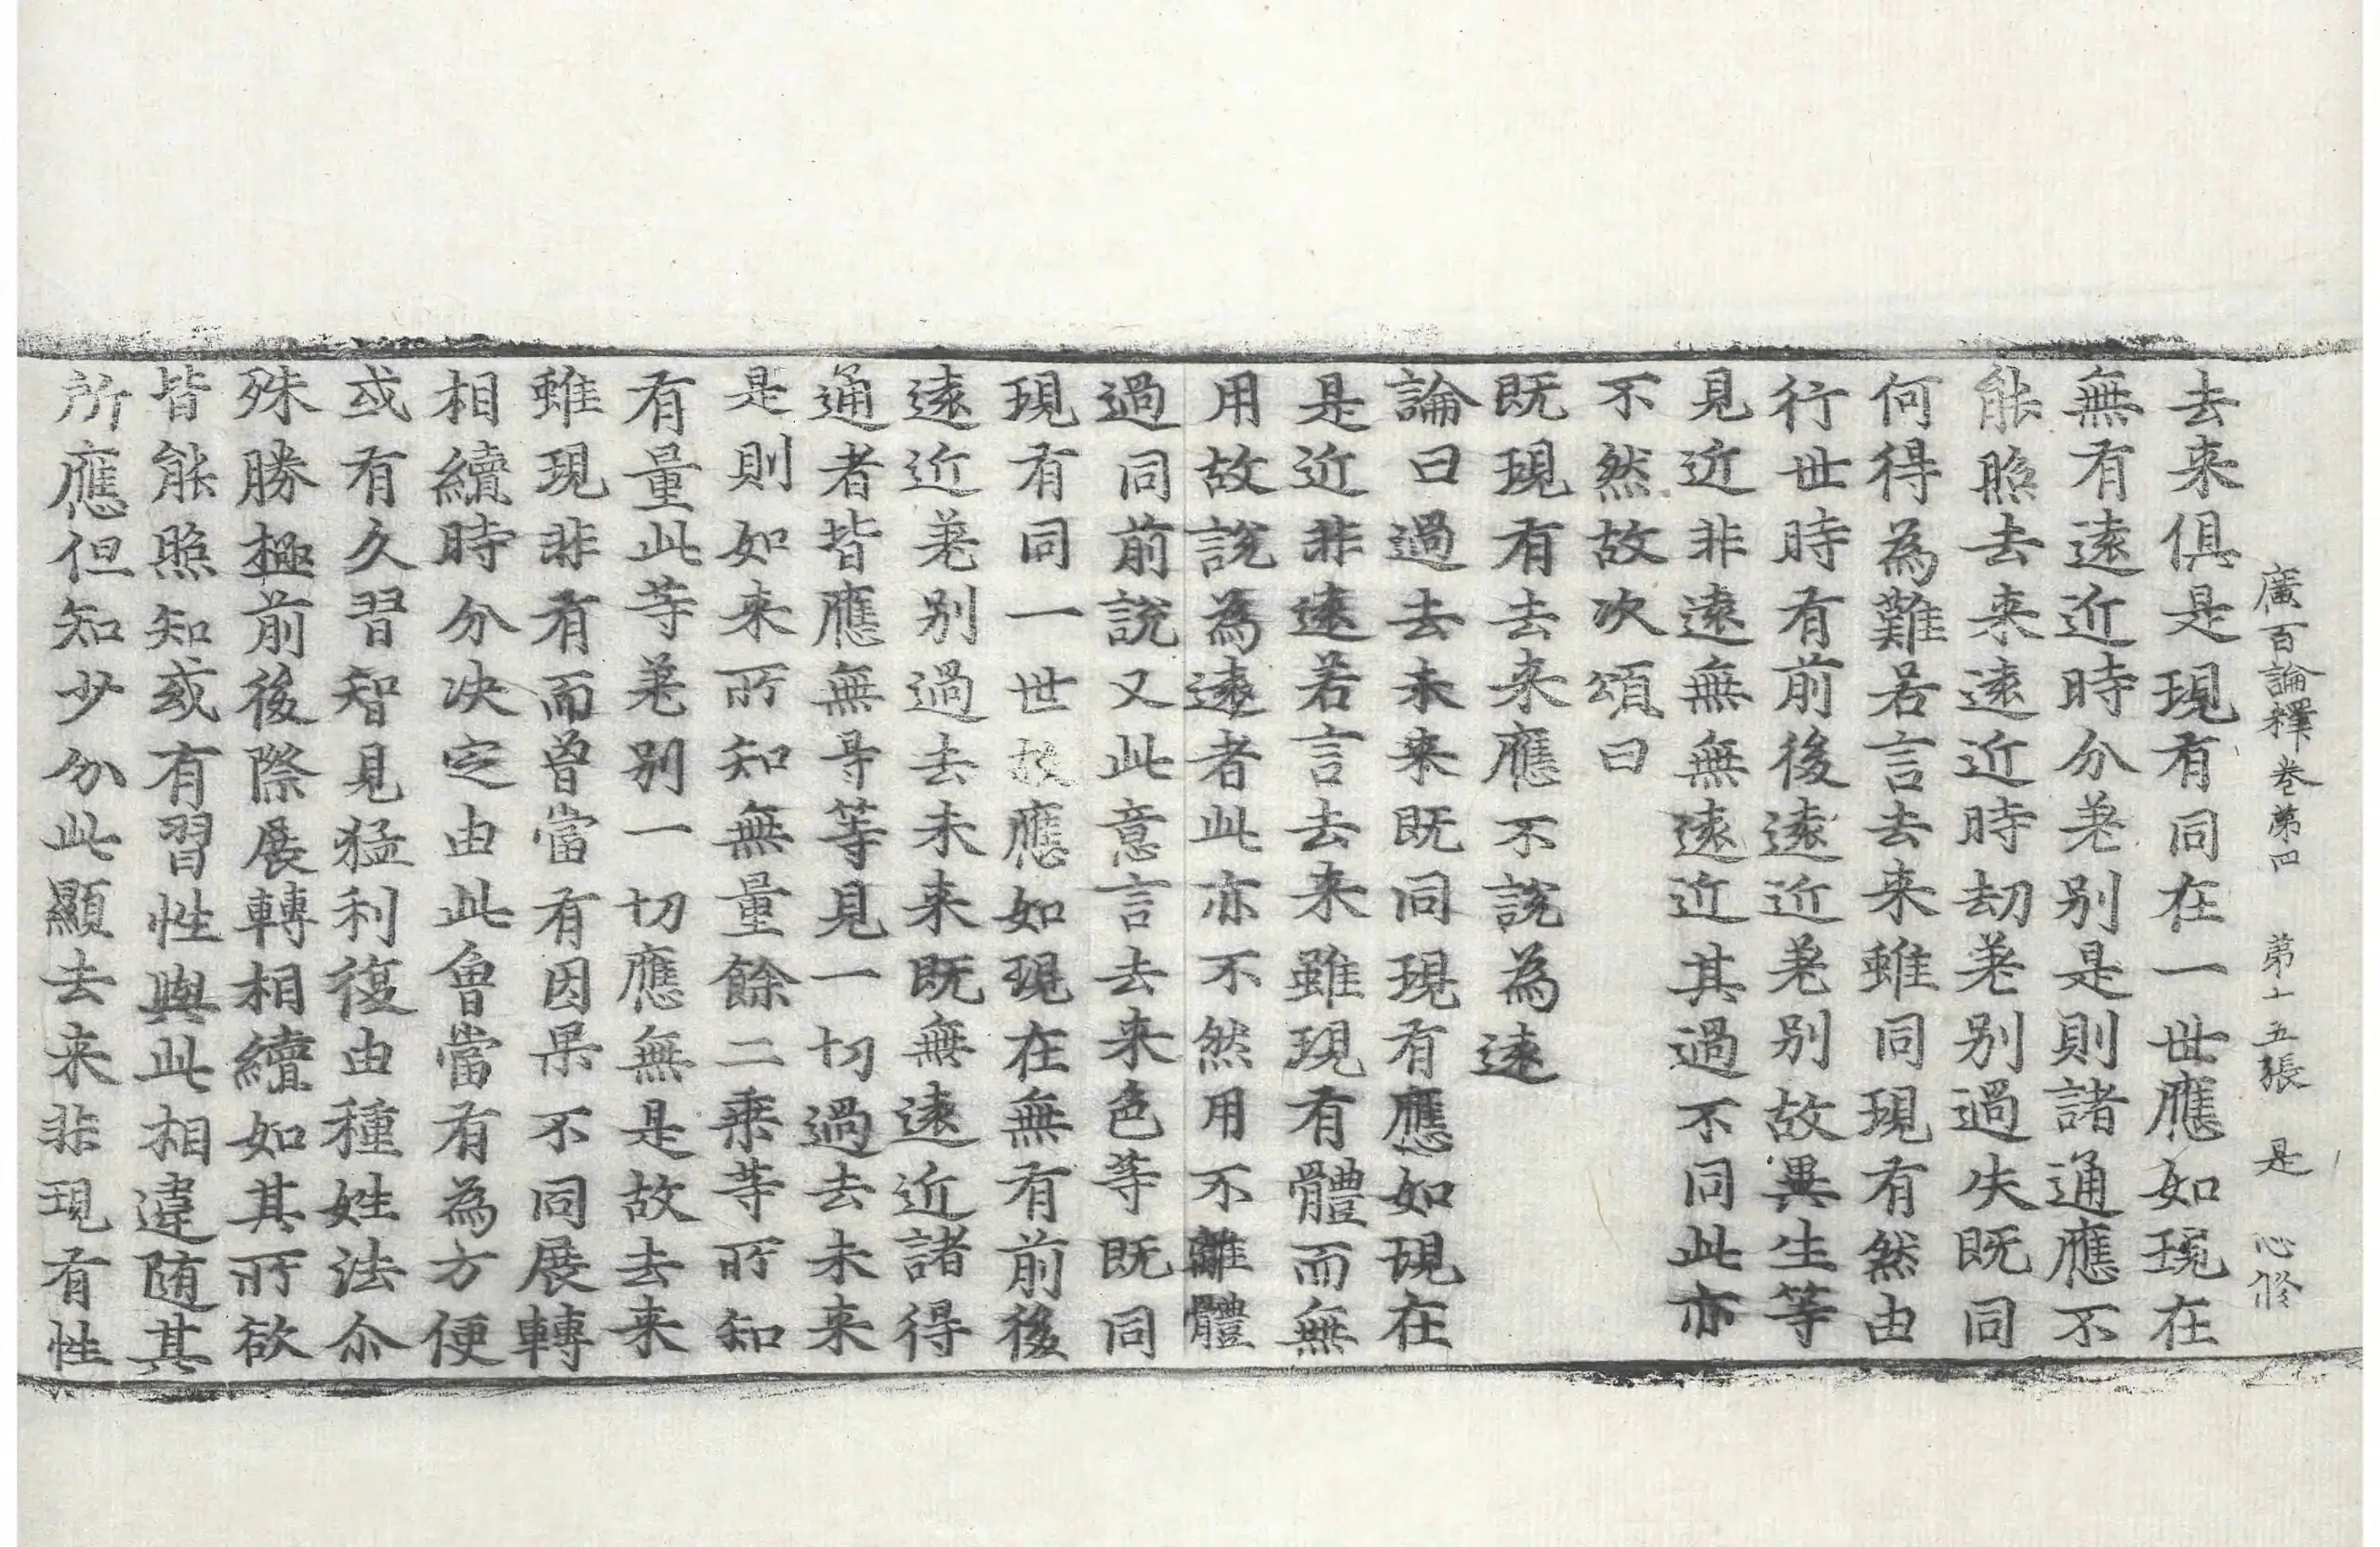 廣百論釋卷第四　第十五張　是　心修
去来俱是現有同在一世應如現在
無有遠近時分差别是則諸通應不
能照去来遠近時劫差别過失既同
何得為難若言去来雖同現有然由
行世時有前後遠近差别故異生等
見近非遠無無遠近其過不同此亦
不然故次頌曰
既現有去来應不說為遠
論曰過去未来既同現有應如現在
是近非遠若言去来雖現有體而無
用故說為遠者此亦不然用不離體
過同前說又此意言去来色等既同
現有同一世故應如現在無有前後
遠近差别過去未来既無遠近諸得
通者皆應無等見一切過去未来
是則如来所知無量餘二乘等所知
有量此等差别一切應無是故去来
雖現非有而曾當有因果不同展轉
相續時分决定由此曾當有為方便
或有久習智見猛利復由種姓法尒
殊勝極前後際展轉相續如其所欲
皆能照知或有習性與此相違随其
所應但知少分此顯去来非現有性